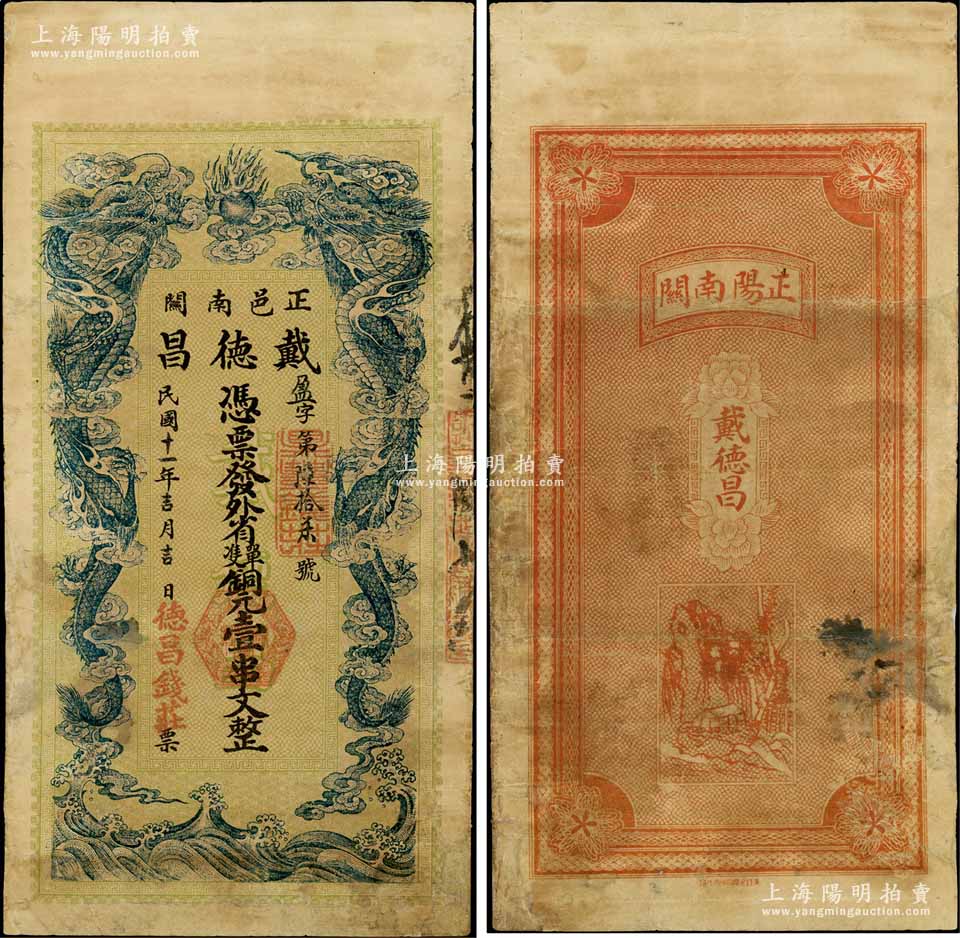 上海陽明拍賣
www.yangmingauction.com
正邑南關
戴德昌
盈字第陸拾柒號
憑票發外省單雙銅元壹串文整
民國十一年吉月吉日
德昌錢莊票
上海陽明拍賣
www.yangmingauction.com
正陽南關
戴德昌
上海陽明拍賣
www.yangmingauction.com
上海陽明拍賣
www.yangmingauction.com